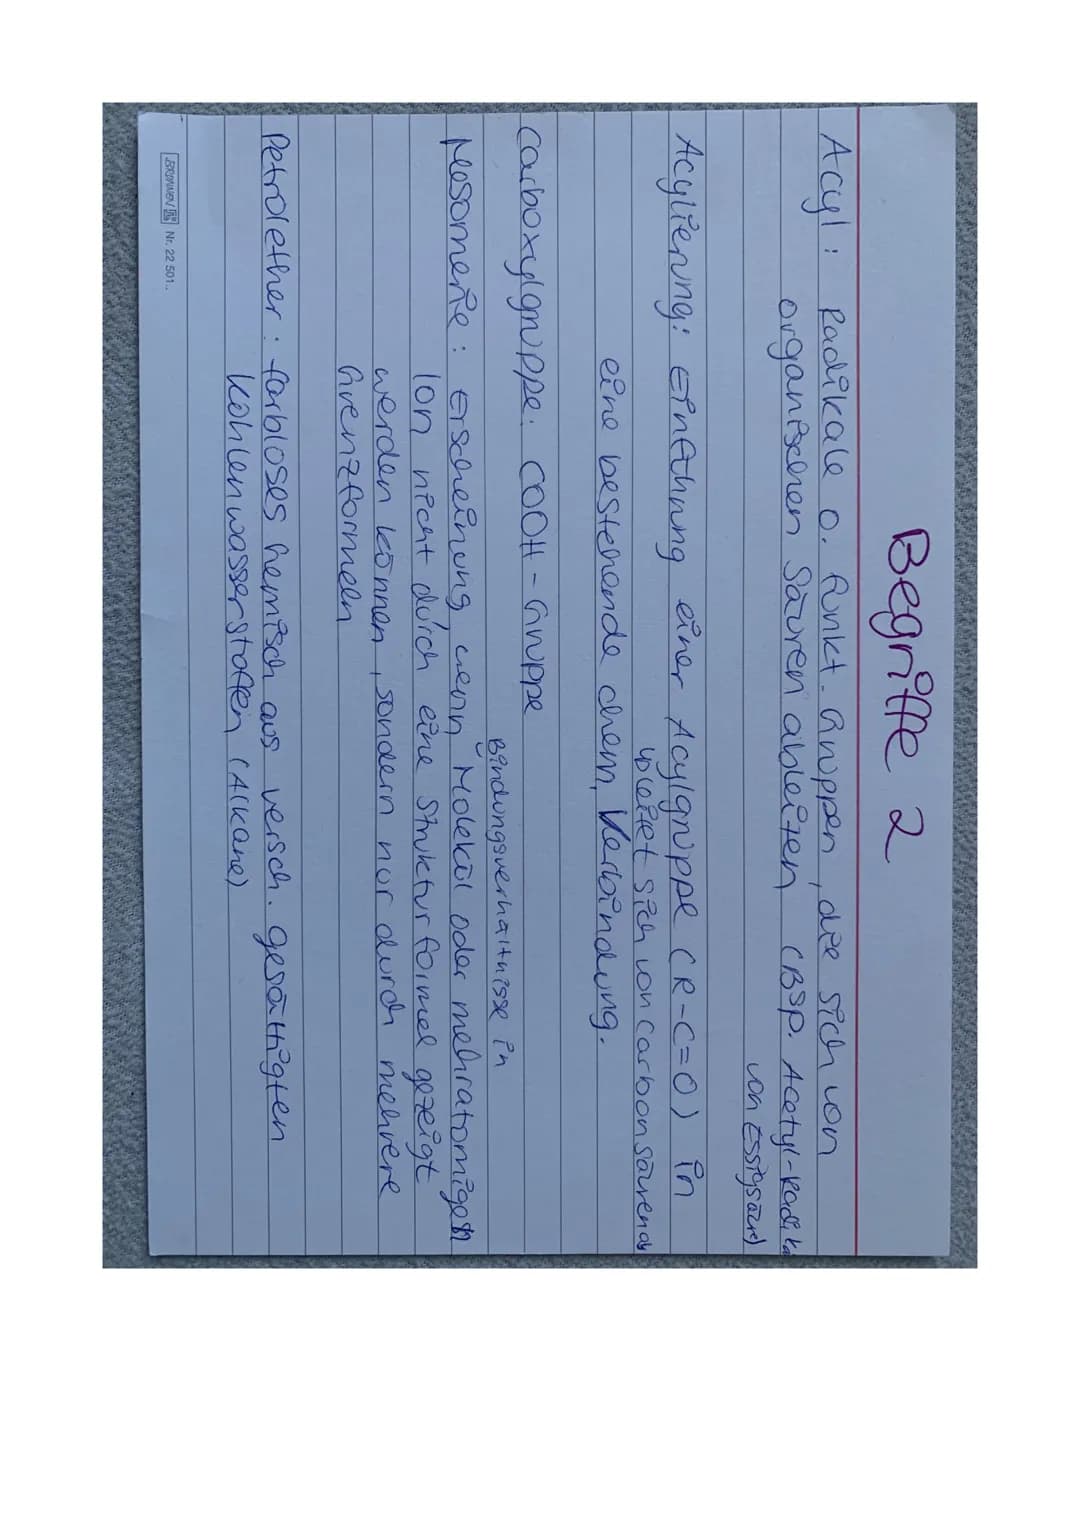 Begriffe 2
Acyl: Radikale o. funkt. Gruppen, die sich von
organischen Säuren ableiten (Bsp. Acetyl-Radika
von Essigsäure)
Acylierung: Einführung einer Acylgruppe (R-C=O) in
leitet sich von Carbonsäuren ab
eine bestehende chem. Verbindung.
Carboxylgruppe: COOH-Gruppe
Bindungsverhältnisse in
Mesomerie: Erscheinung, wenn Molekül oder mehratomigen
Ion nicht durch eine Strukturformel gezeigt
werden können, sondern nur durch mehrere
Grenzformeln
Petrolether: farbloses Gemisch aus versch. gesättigten
Kohlenwasserstoffen (Alkane)
BRUNNEN Nr. 22 501..